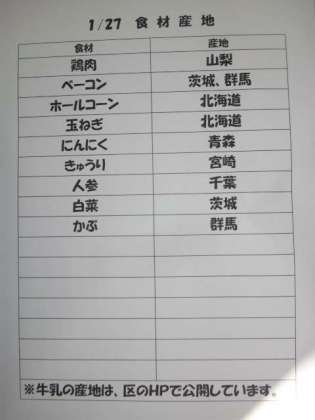 1/27 食材産地
食材 産地
鶏肉 山梨
ベーコン 茨城、群馬
ホールコーン 北海道
玉ねぎ 北海道
にんにく 青森
きゅうり 宮崎
人参 千葉
白菜 茨城
かぶ 群馬
※牛乳の産地は、区のHPで公開しています。